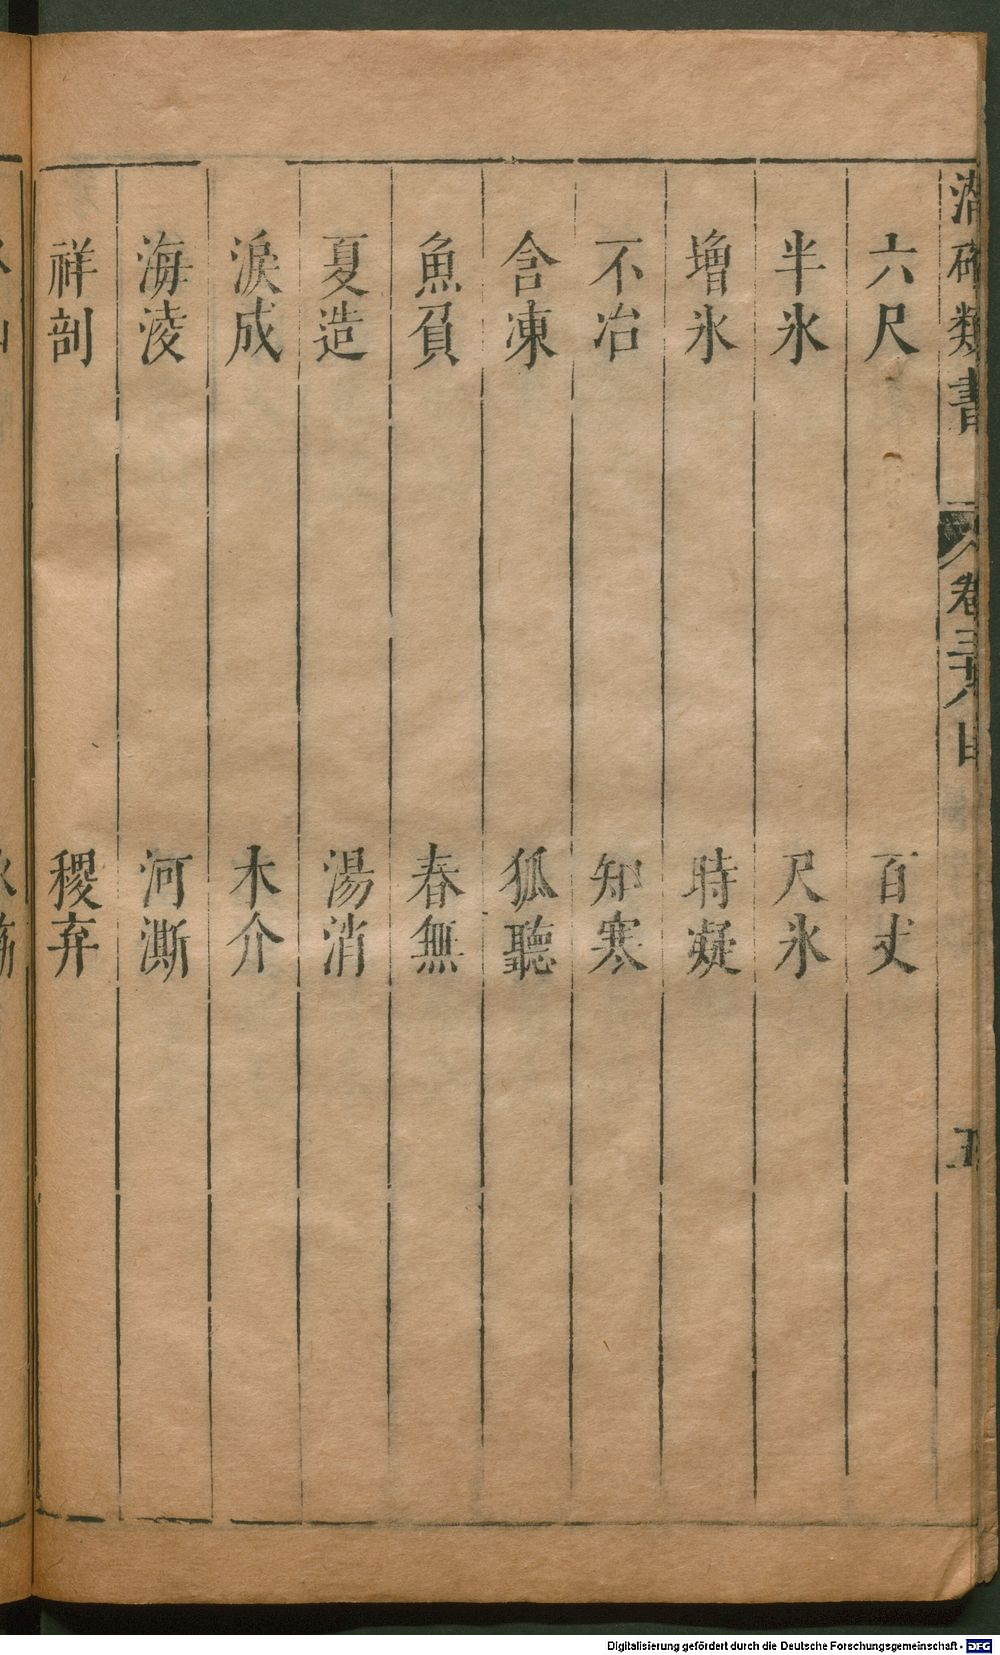 潛確類書 卷三十八目 五
六尺 百丈
半氷 尺氷
增氷 時凝
不冶 知寒
含凍 狐聽
魚負 春無
夏造 湯消
淚成 木介
海淩 河澌
祥剖 稷弃
Digitalisierung gefördert durch die Deutsche Forschungsgemeinschaft - DFG